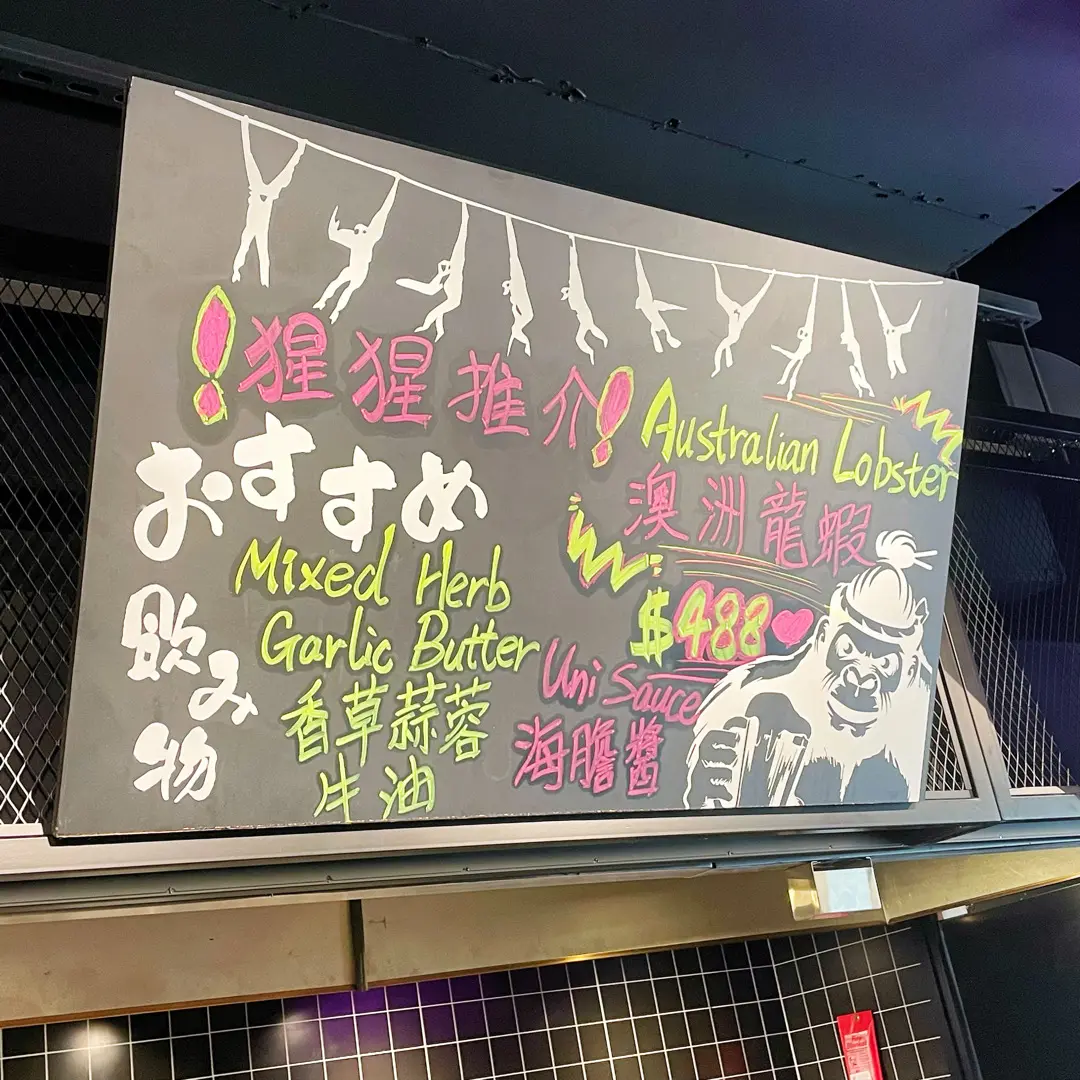 !猩猩推介!
おすすめ
飲み物
Australian Lobster
澳洲龍蝦
$488
Mixed Herb
Garlic Butter
香草蒜蓉
牛油
Uni Sauce
海膽醬